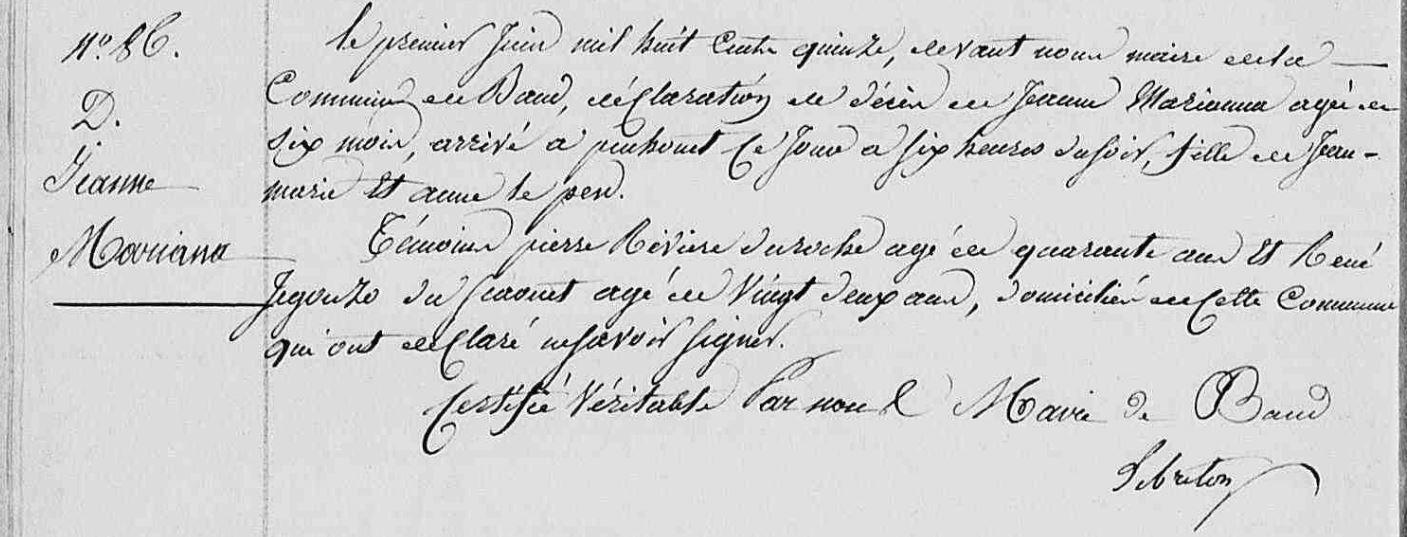 N.o 86.
D.
Jeanne
Mariana
le premier Juin mil huit Cents quinze, devant nous maire de la
Commune de Baud, déclaration de décès de Jeanne Marianna agée de
six mois, arrivé a ce Jour a six heures du soir, fille de Jean-
marie Et anne le pen.
Témoins pierre Rivière agé de quarante ans Et René
Jegouzo du agé de Vingt deux ans, domicilié de Cette Commune
qui ont déclaré ne savoir signer.
Certifié Véritable Par nous Maire de Baud
Lebreton